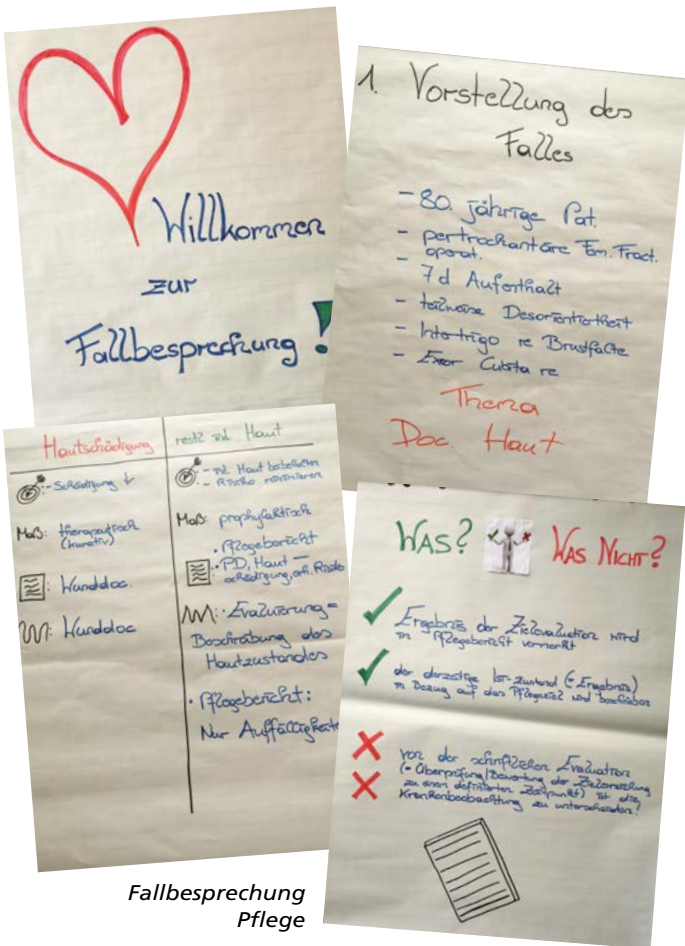 Willkommen
zur
Fallbesprechung!
1. Vorstellung des
Falles
- 80. jährige Pat.
- pertrochantäre Fem. Fract.
- operat.
- 7 d Aufenthalt
- teilweise Desorientiertheit
- Intertrigo re Brustfalte
- Cubita re
Thema
Doc. Haut
Hautschädigung
- Schädigung ↓
Maß: therapeutisch
(kurativ)
: Wunddoc.
: Wunddoc
Haut
- Haut
- Risiko minimieren
Maß: prophylaktisch
• Pflegebericht
• PD, Haut –
schädigung, Risiko
: • Evaluierung =
Beschreibung des
Hautzustandes
• Pflegebericht:
Nur Auffälligkeiten
WAS? WAS NICHT?
Ergebnis der Zielevaluation wird
im Pflegebericht vermerkt
der derzeitige Ist-Zustand (= Ergebnis)
in Bezug auf das Pflegeziel wird beschrieben
von der schriftlichen Evaluation
(= Überprüfung/Bewertung der Zielerreichung
zu einem definierten Zeitpunkt) ist die
Krankenbeobachtung zu unterscheiden!
Fallbesprechung
Pflege